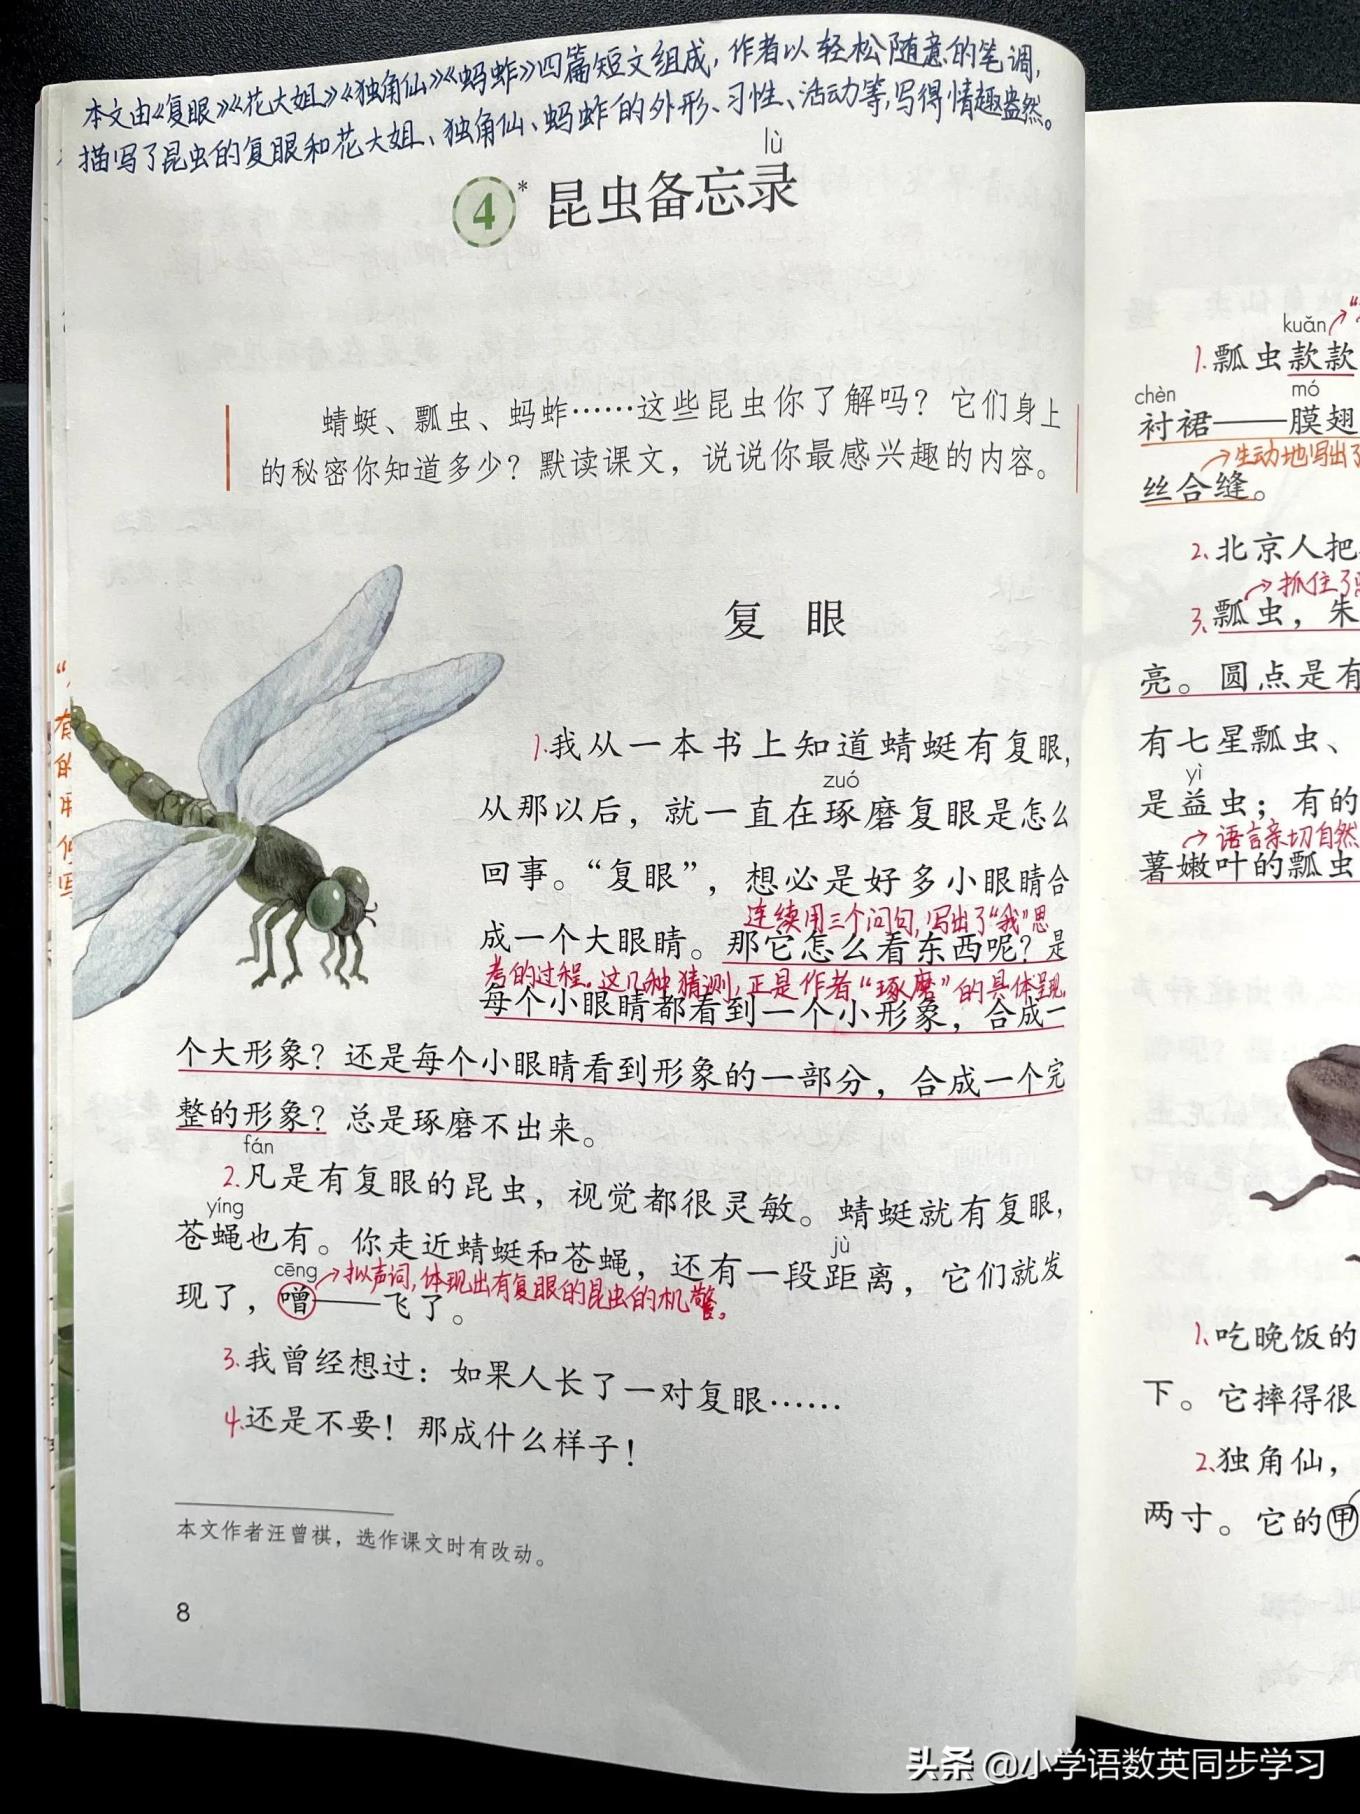 本文由《复眼》《花大姐》《独角仙》《蚂蚱》四篇短文组成，作者以轻松随意的笔调，
描写了昆虫的复眼和花大姐、独角仙、蚂蚱的外形、习性、活动等，写得情趣盎然。
lù
4* 昆虫备忘录
蜻蜓、瓢虫、蚂蚱……这些昆虫你了解吗？它们身上
的秘密你知道多少？默读课文，说说你最感兴趣的内容。
复眼
1.我从一本书上知道蜻蜓有复眼，
zuó
从那以后，就一直在琢磨复眼是怎么
回事。“复眼”，想必是好多小眼睛合
连续用三个问句，写出了“我”思
成一个大眼睛。那它怎么看东西呢？是
考的过程。这几种猜测，正是作者“琢磨”的具体呈现
每个小眼睛都看到一个小形象，合成一
个大形象？还是每个小眼睛看到形象的一部分，合成一个完
整的形象？总是琢磨不出来。
fán
2.凡是有复眼的昆虫，视觉都很灵敏。蜻蜓就有复眼，
yíng
苍蝇也有。你走近蜻蜓和苍蝇，还有一段距离，它们就发
jù
cēng
拟声词，体现出有复眼的昆虫的机警。
现了，噌——飞了。
3.我曾经想过：如果人长了一对复眼……
4.还是不要！那成什么样子！
本文作者汪曾祺，选作课文时有改动。
8
kuǎn
1.瓢虫款款
chèn mó
衬裙——膜翅
生动地写出了
丝合缝。
2.北京人把
抓住了
3.瓢虫，朱
亮。圆点是有
有七星瓢虫、
yì
是益虫；有的
语言亲切自然
薯嫩叶的瓢虫
1.吃晚饭的
下。它摔得很
2.独角仙，
两寸。它的甲
头条 @小学语数英同步学习